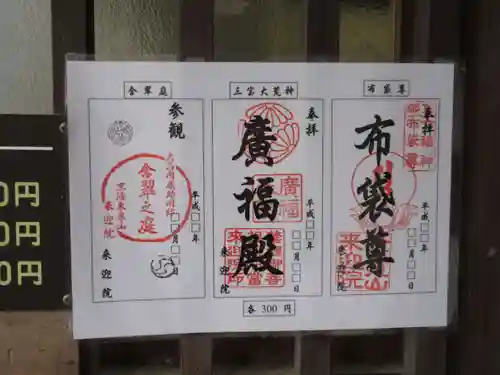 布袋尊
奉拝
布袋尊
平成□□年
□□月□□日
来迎院
三宝大荒神
奉拝
廣福殿
廣福
平成□□年
□□月□□日
来迎院
含翠庭
参観
含翠之庭
来迎院
平成□□年
□□月□□日
来迎院
各300円
0円
0円
0円